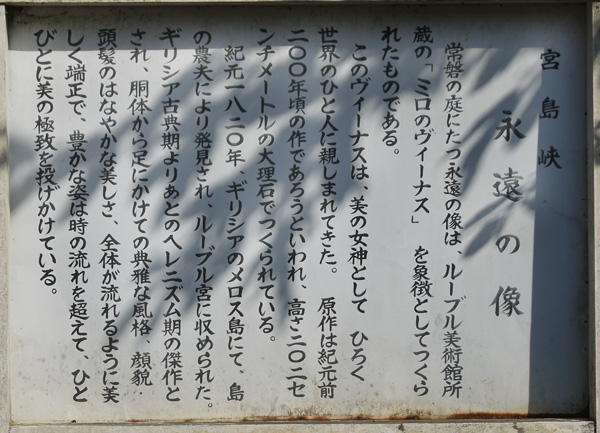 宮島峡
永遠の像
常磐の庭にたつ永遠の像は、ルーブル美術館所
蔵の「ミロのヴィーナス」 を象徴としてつくら
れたものである。
このヴィーナスは、美の女神として ひろく
世界のひと人に親しまれてきた。 原作は紀元前
二〇〇年頃の作であろうといわれ、高さ二〇二セ
ンチメートルの大理石でつくられている。
紀元一八二〇年、ギリシアのメロス島にて、島
の農夫により発見され、ルーブル宮に収められた。
ギリシア古典期よりあとのヘレニズム期の傑作と
され、胴体から足にかけての典雅な風格、顔貌・
頭髪のはなやかな美しさ、全体が流れるように美
しく端正で、豊かな姿は時の流れを超えて、ひと
びとに美の極致を投げかけている。